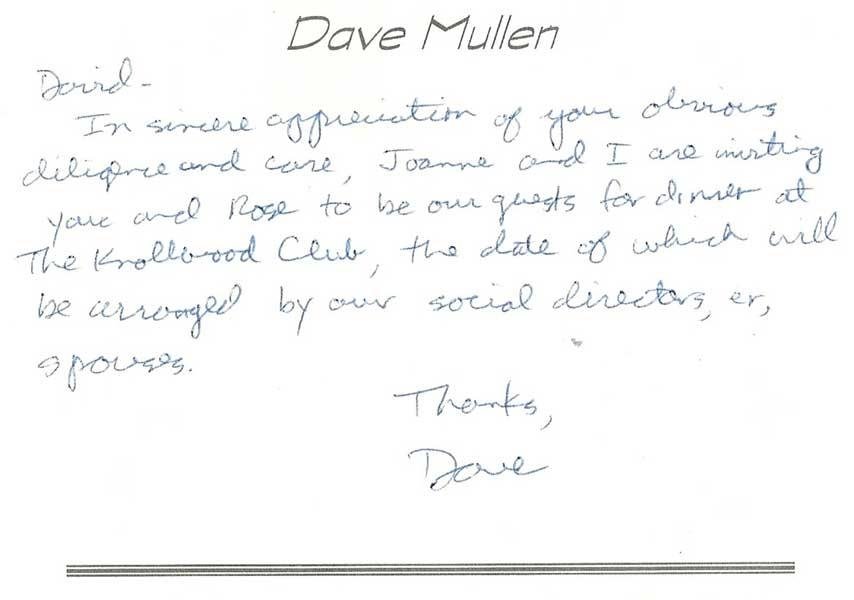 Dave Mullen
David-
In sincere appreciation of your obvious
diligence and care, Joanne and I are inviting
you and Rose to be our guests for dinner at
The Knollwood Club, the date of which will
be arranged by our social directors, er,
spouses.
Thanks,
Dave